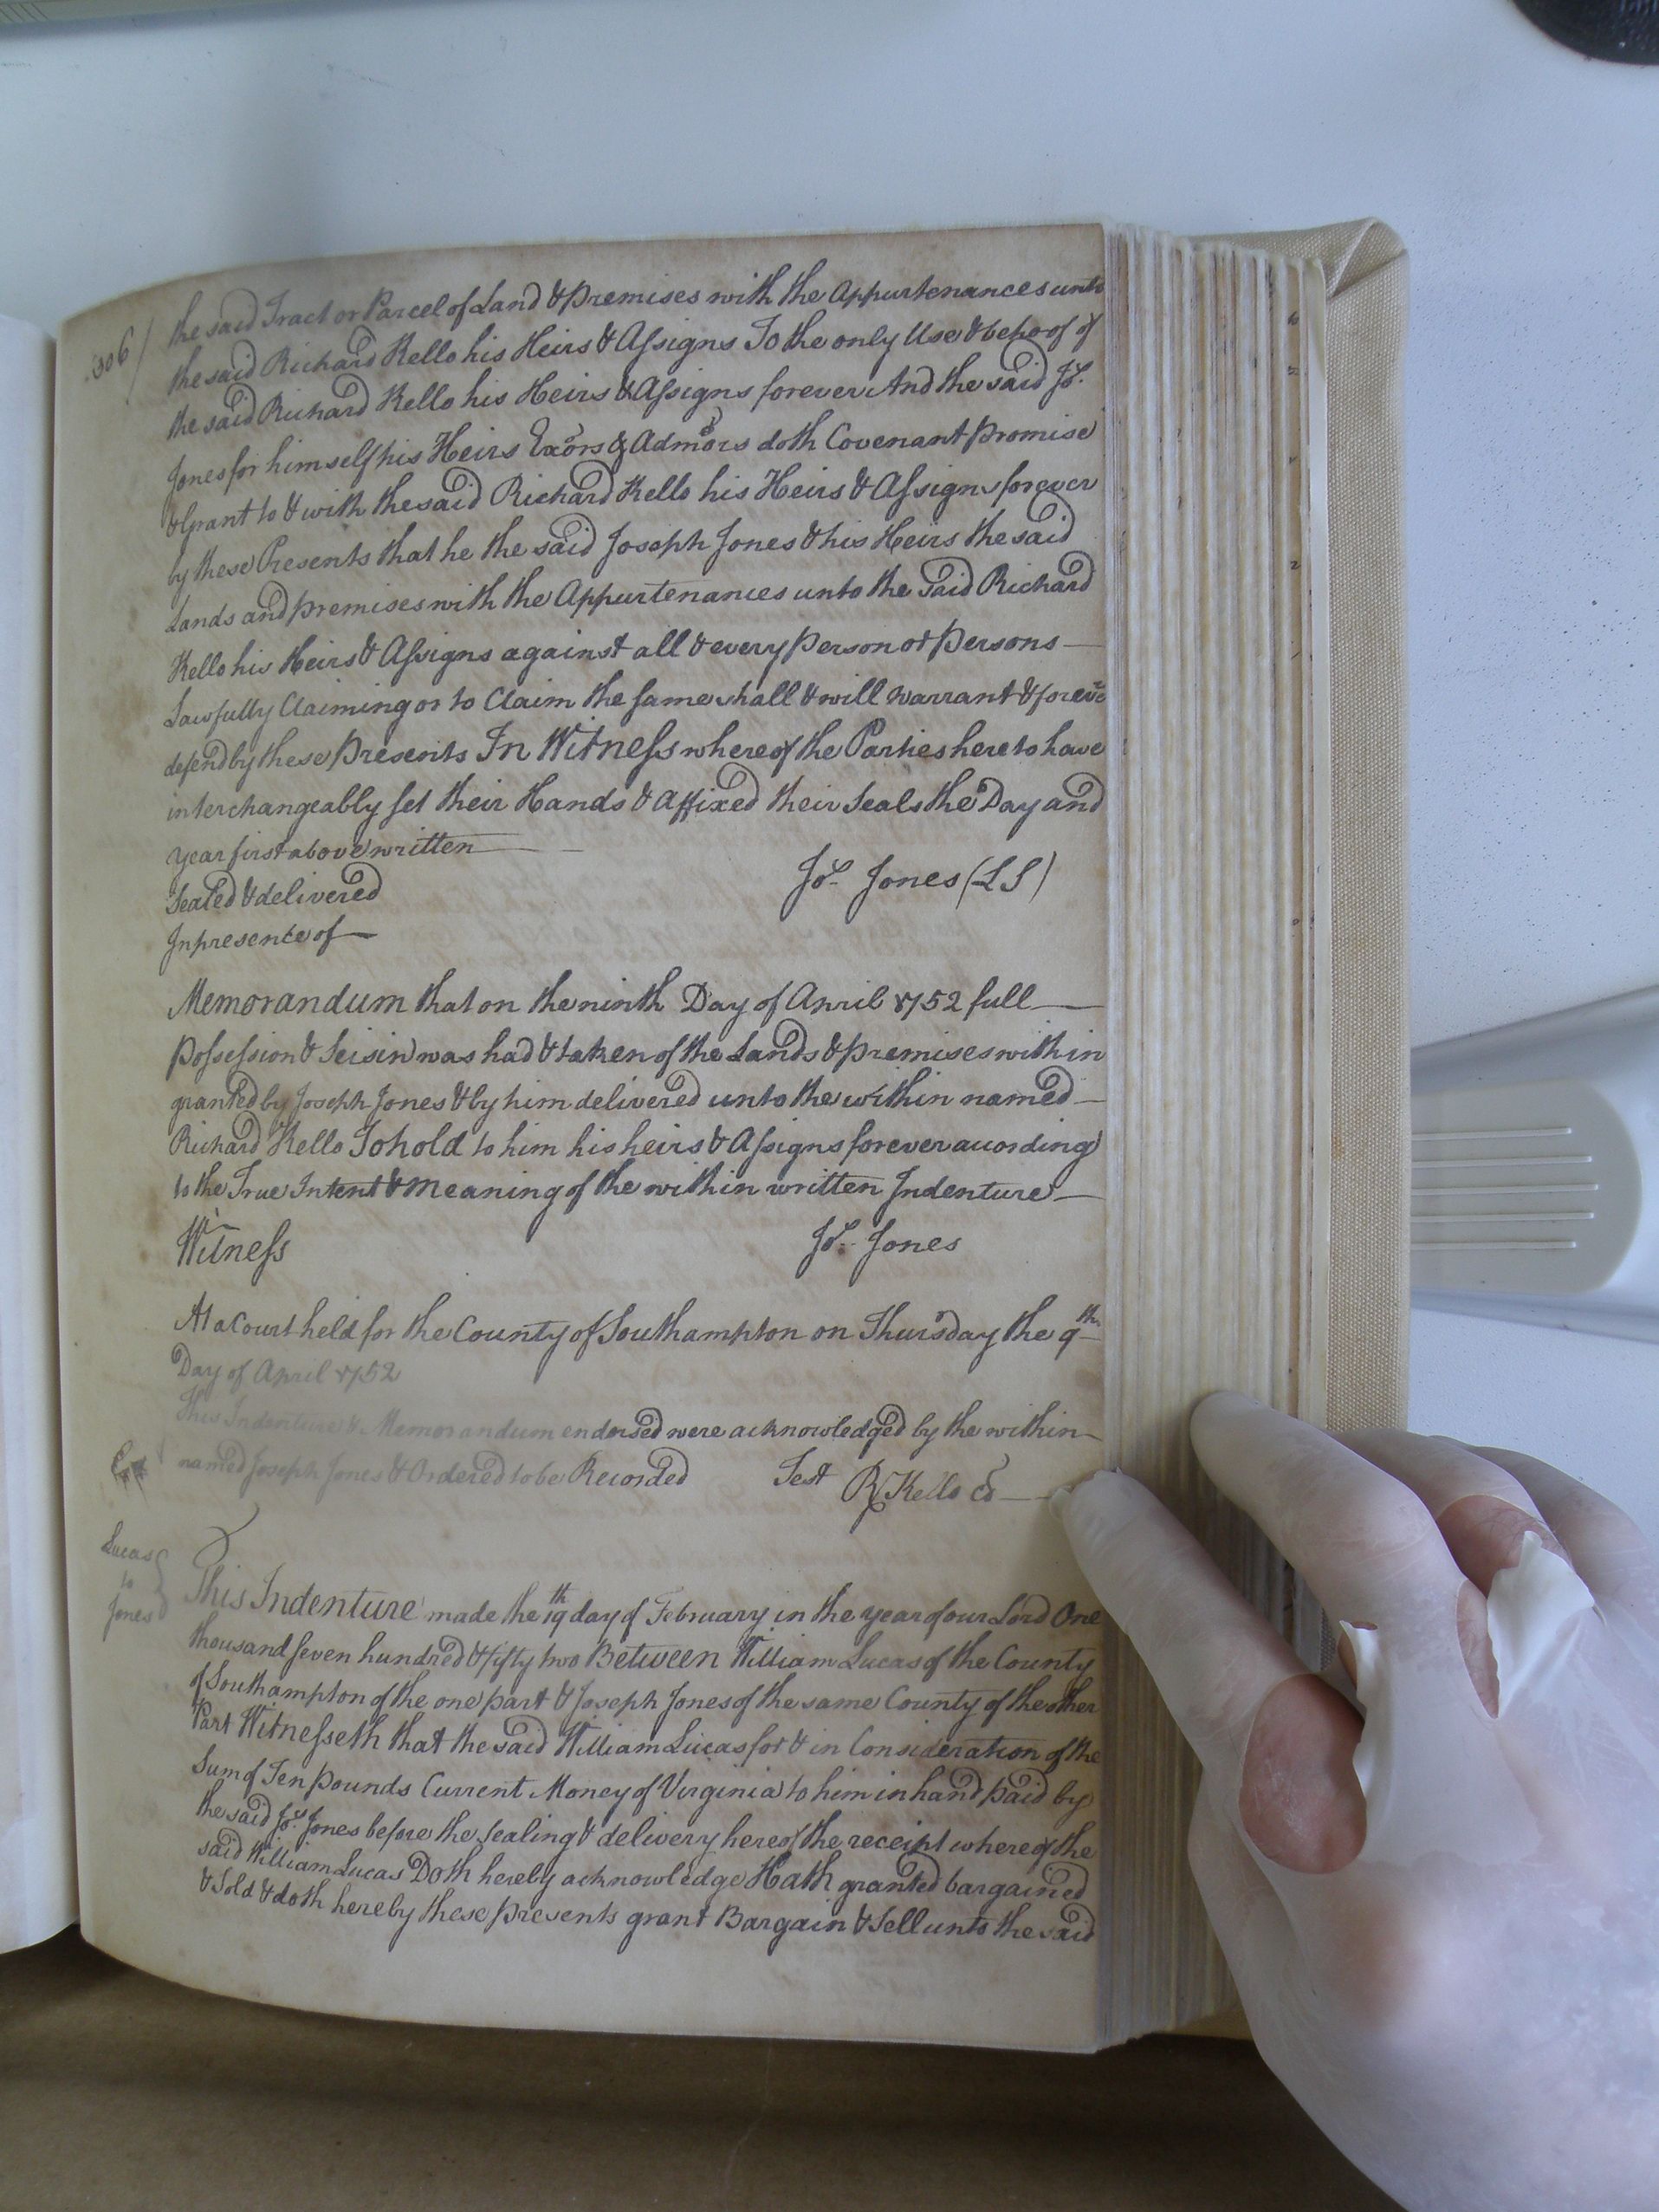 306
the said Tract or Parcel of Land & Premises with the Appurtenances unto
the said Richard Kello his Heirs & Assigns To the only Use & behoof of
the said Richard Kello his Heirs & Assigns forever And the said Jos.
Jones for himself his Heirs Exōrs & Admōrs doth Covenant Promise
& Grant to & with the said Richard Kello his Heirs & Assigns forever
by these Presents that he the said Joseph Jones & his Heirs the said
Lands and premises with the Appurtenances unto the Said Richard
Kello his Heirs & Assigns against all & every Person or Persons
Lawfully Claiming or to Claim the same shall & will Warrant & forevr
defend by these Presents In Witness whereof the Parties hereto have
interchangeably set their Hands & Affixed their Seals the Day and
year first above written
Jos. Jones (LS)
Sealed & delivered
In presence of
Memorandum that on the ninth Day of April 1752 full
possession & Seisin was had & taken of the Lands & premises within
granted by Joseph Jones & by him delivered unto the within named
Richard Kello To hold to him his heirs & Assigns forever according
to the True Intent & Meaning of the within written Indenture
Witness Jos. Jones
At a Court held for the County of Southampton on Thursday the 9th
Day of April 1752
This Indenture & Memorandum endorsed were acknowledged by the within
named Joseph Jones & Ordered to be Recorded Test R Kello
Lucas
to
Jones
This Indenture made the 19th day of February in the year of our Lord One
thousand seven hundred & fifty two Between William Lucas of the County
of Southampton of the one part & Joseph Jones of the same County of the other
Part Witnesseth that the said William Lucas for & in Consideration of the
Sum of Ten Pounds Current Money of Virginia to him in hand paid by
the said Jos. Jones before the Sealing & delivery hereof the receipt whereof the
said William Lucas Doth hereby acknowledge Hath granted bargained
& Sold & doth hereby these presents grant Bargain & Sell unto the said